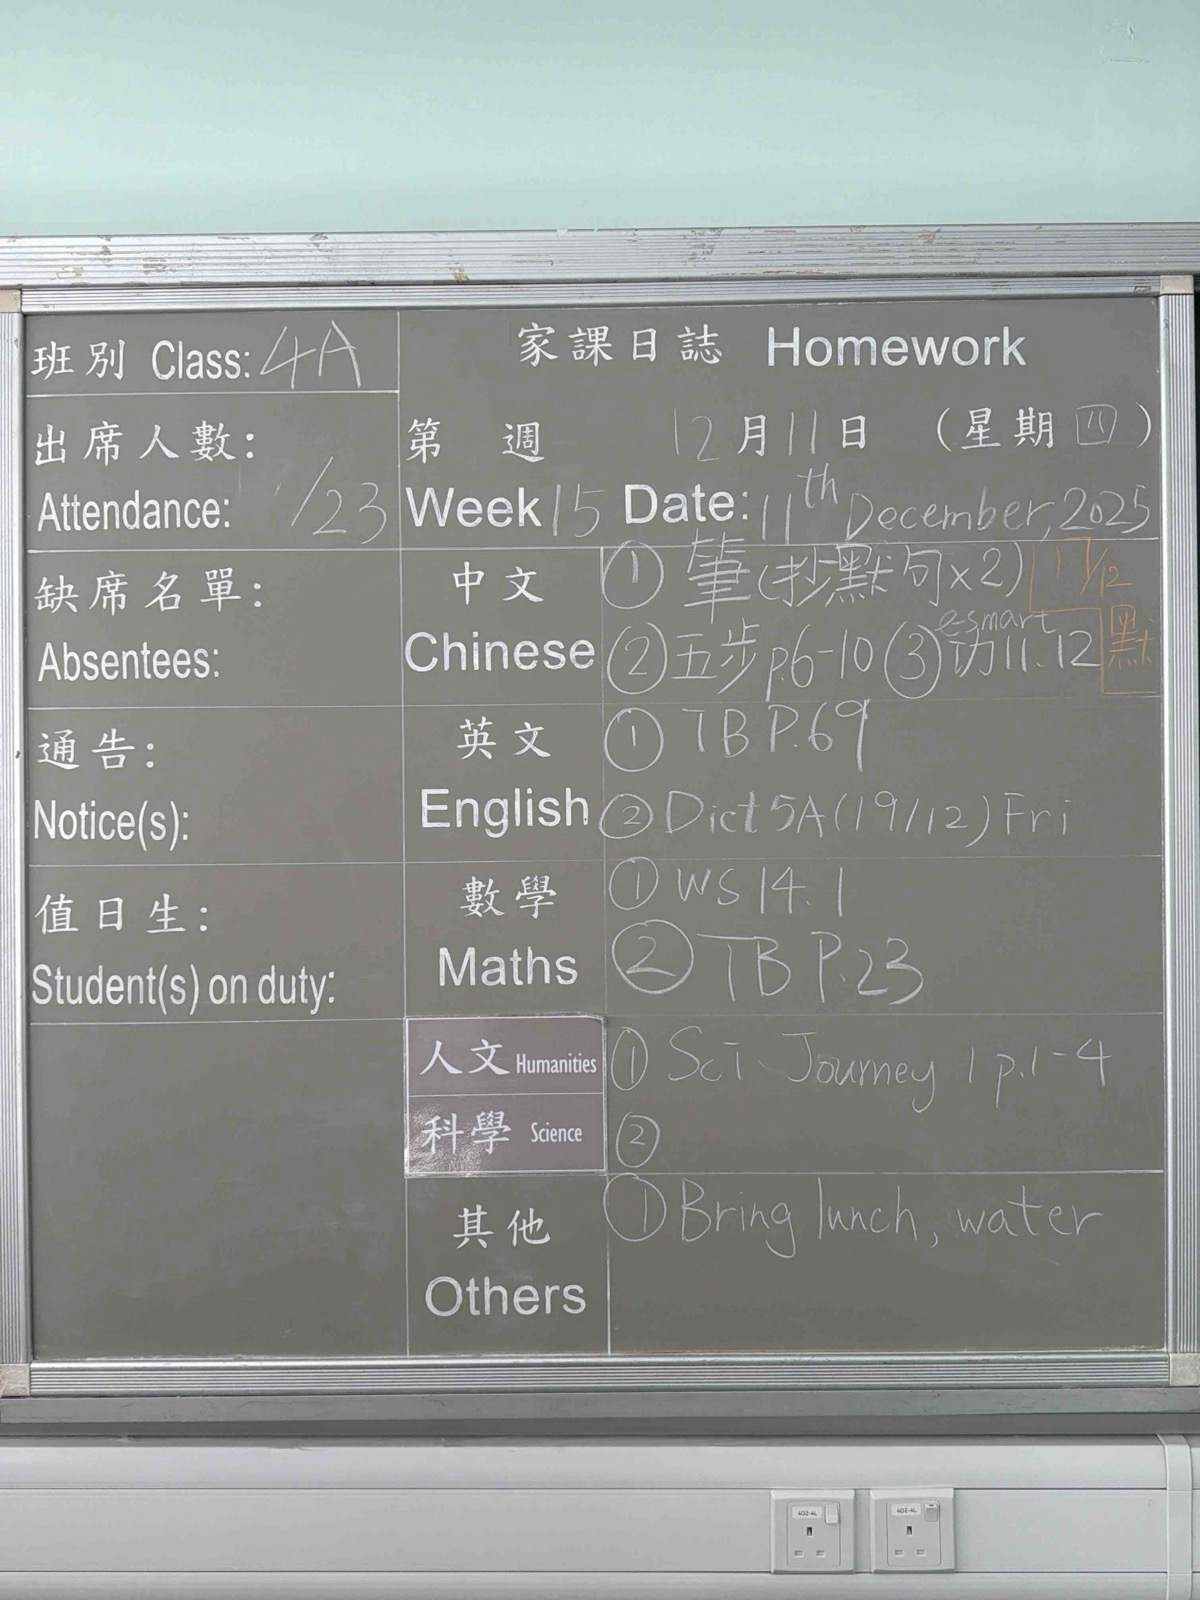 班別 Class: 4A
家課日誌 Homework
出席人數:
Attendance: /23
第 週 12月11日 (星期四)
Week 15 Date: 11th December, 2025
缺席名單:
Absentees:
中文
Chinese
① 筆(抄默句x2) 17/12
默
② 五步p.6-10 ③ e-smart 11.12
通告:
Notice(s):
英文
English
① TB P.69
② Dict 5A (19/12) Fri
值日生:
Student(s) on duty:
數學
Maths
① WS 14.1
② TB P.23
人文 Humanities
科學 Science
① Sci Journey 1 p.1-4
②
其他
Others
① Bring lunch, water
402-4L
402-4L